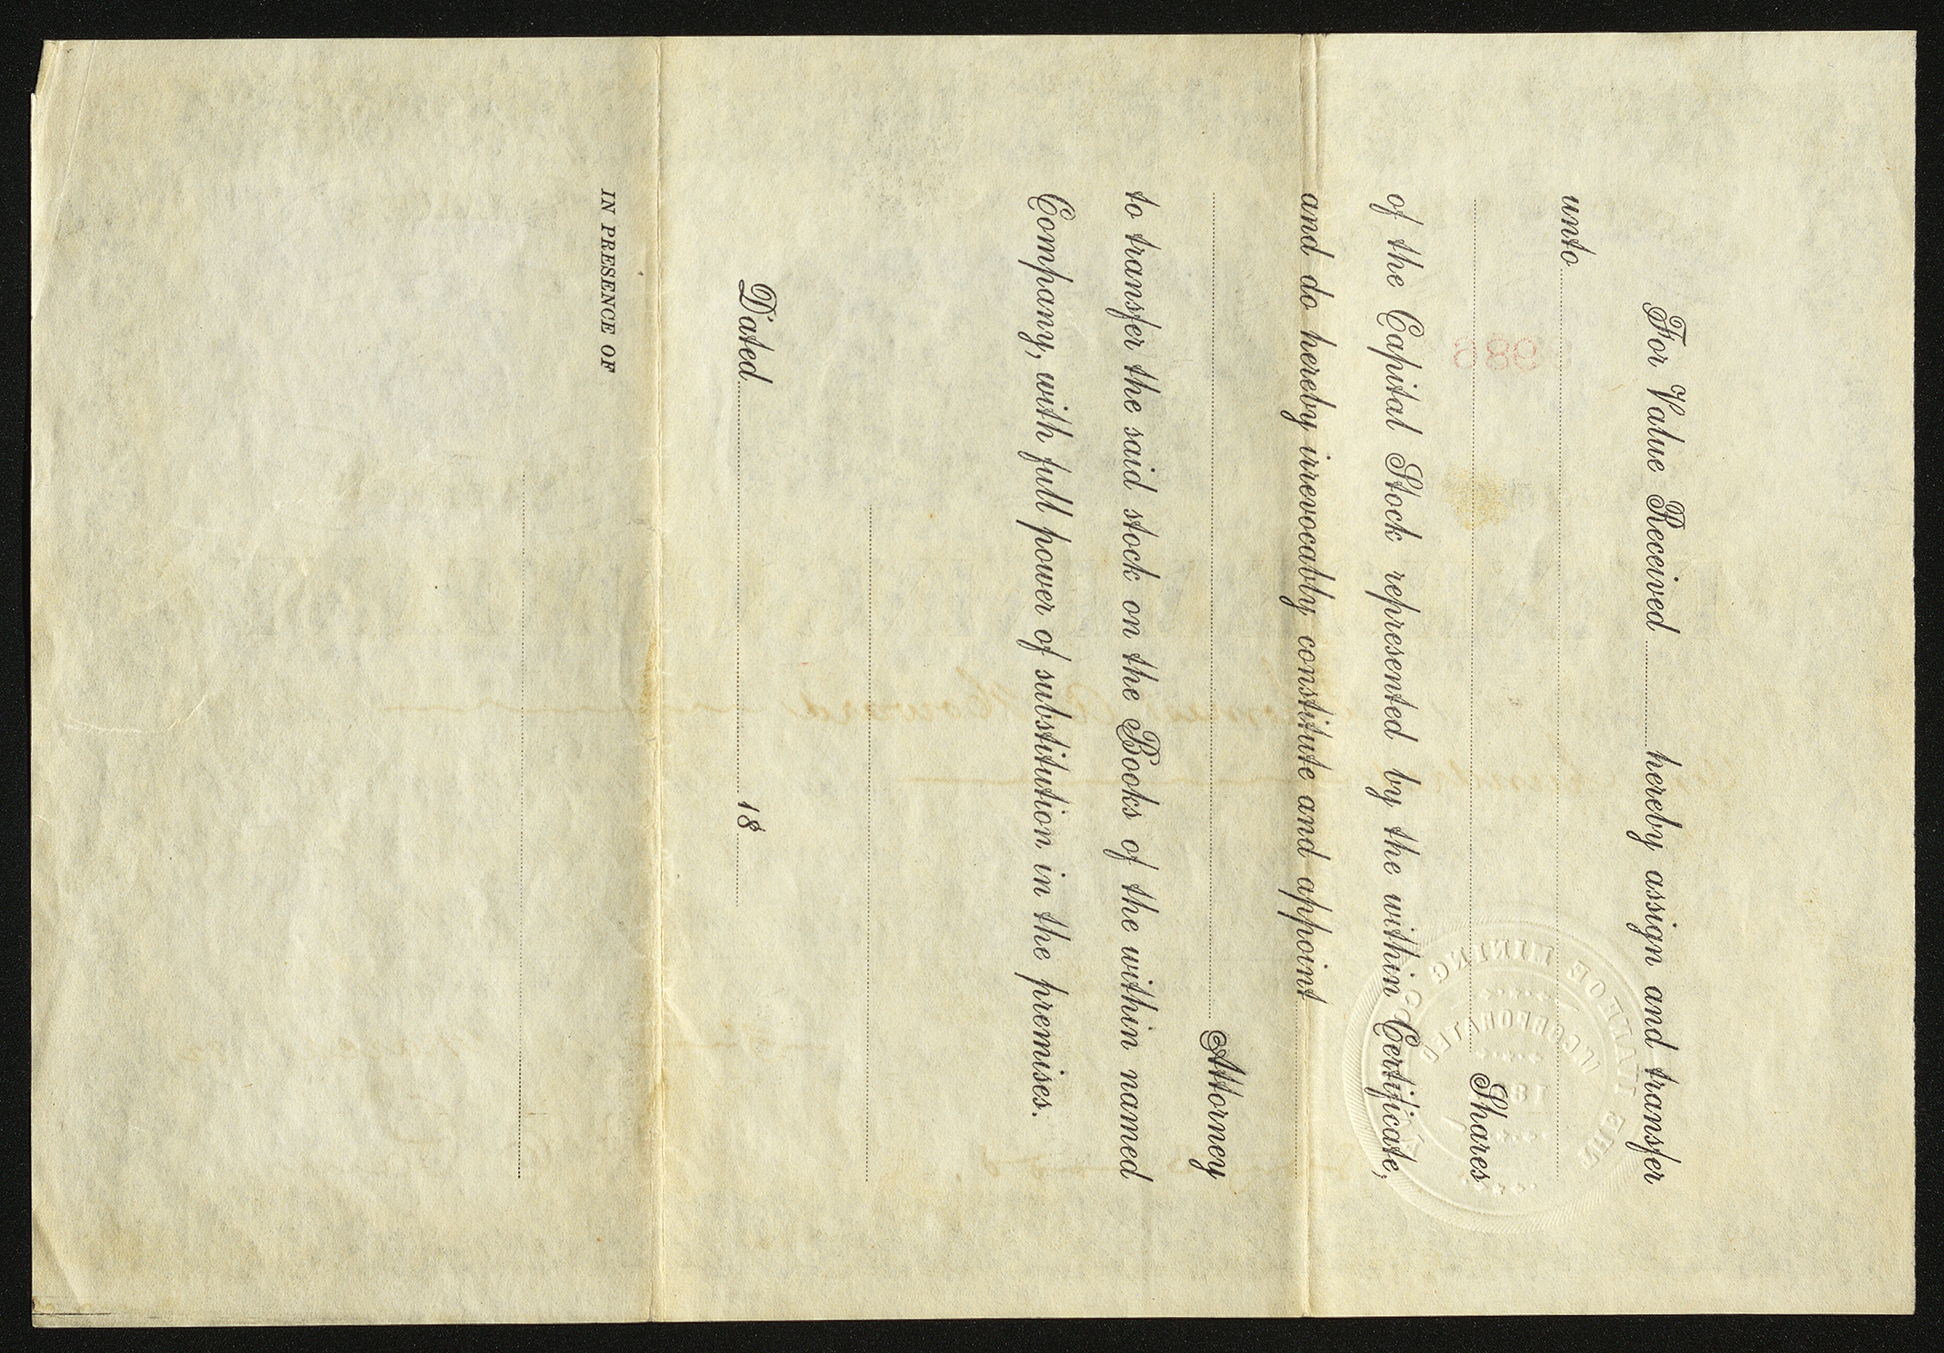 For Value Received ........ hereby assign and transfer
unto
Shares
of the Capital Stock represented by the within Certificate,
and do hereby irrevocably constitute and appoint
Attorney
to transfer the said stock on the Books of the within named
Company, with full power of substitution in the premises.
Dated ........ 18
IN PRESENCE OF
THE IVANHOE MINING CO.
INCORPORATED
986